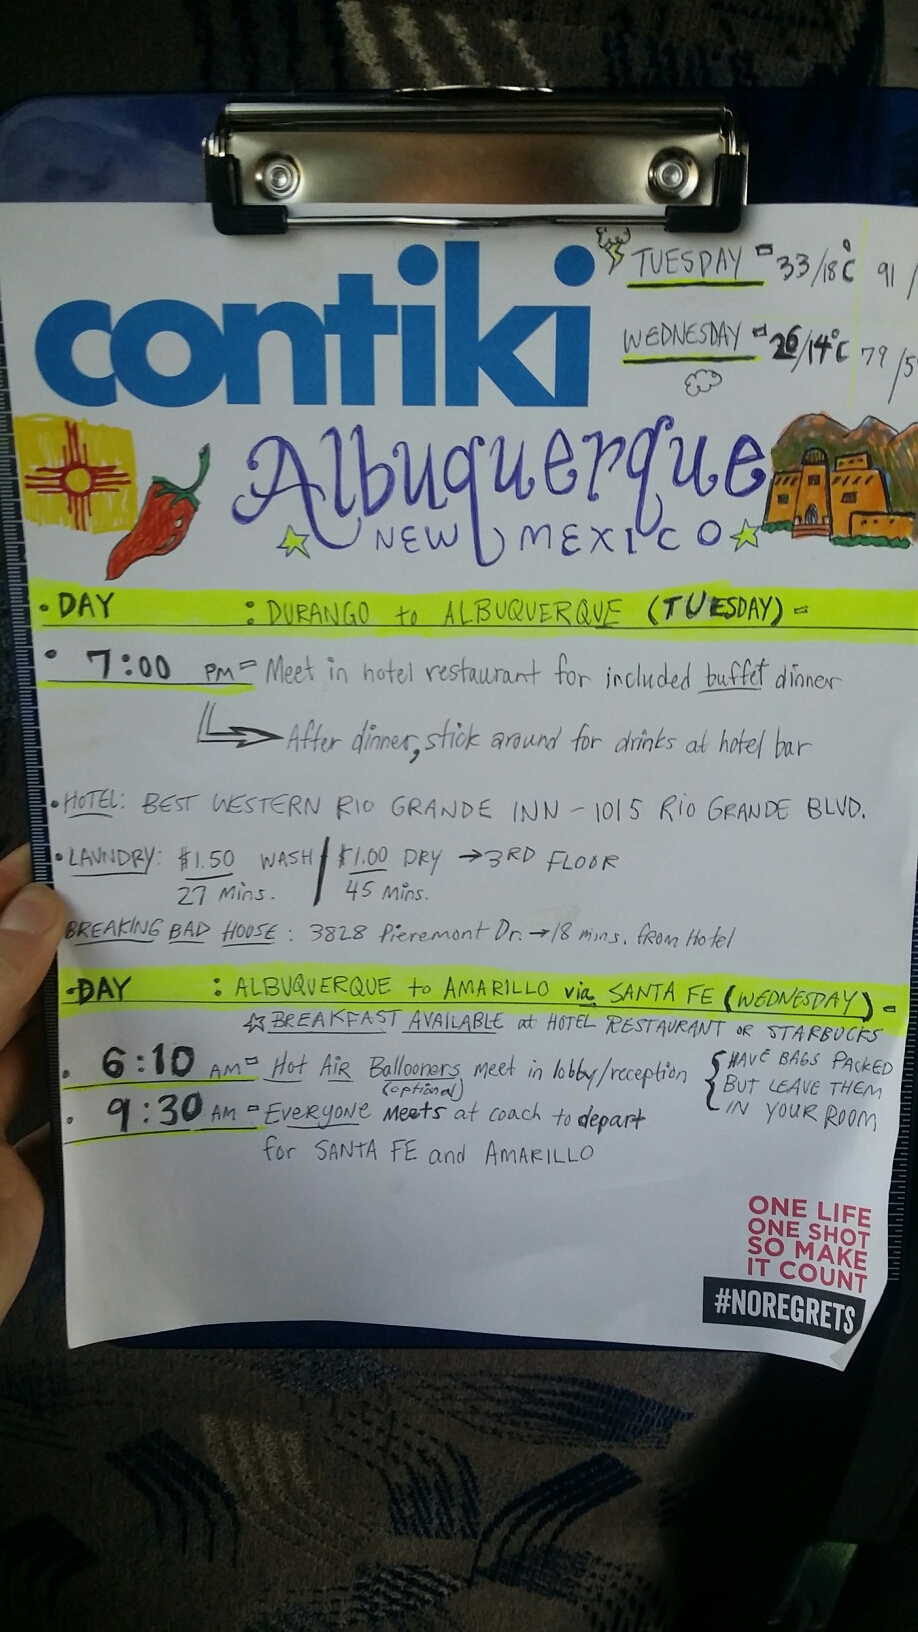 contiki
TUESDAY = 33/18°C 91/
WEDNESDAY = 26/14°C 79/5
Albuquerque
NEW MEXICO
• DAY : DURANGO to ALBUQUERQUE (TUESDAY) =
• 7:00 PM = Meet in hotel restaurant for included buffet dinner
After dinner, stick around for drinks at hotel bar
• HOTEL: BEST WESTERN RIO GRANDE INN - 1015 RIO GRANDE BLVD.
• LAUNDRY: $1.50 WASH / $1.00 DRY → 3RD FLOOR
27 Mins. 45 Mins.
BREAKING BAD HOUSE: 3828 Pieremont Dr. → 18 mins. from Hotel
• DAY : ALBUQUERQUE to AMARILLO via SANTA FE (WEDNESDAY) =
☆ BREAKFAST AVAILABLE at HOTEL RESTAURANT or STARBUCKS
• 6:10 AM = Hot Air Ballooners meet in lobby/reception
(optional)
{ HAVE BAGS PACKED
BUT LEAVE THEM
IN YOUR ROOM
• 9:30 AM = EVERYONE meets at coach to depart
for SANTA FE and AMARILLO
ONE LIFE
ONE SHOT
SO MAKE
IT COUNT
#NOREGRETS